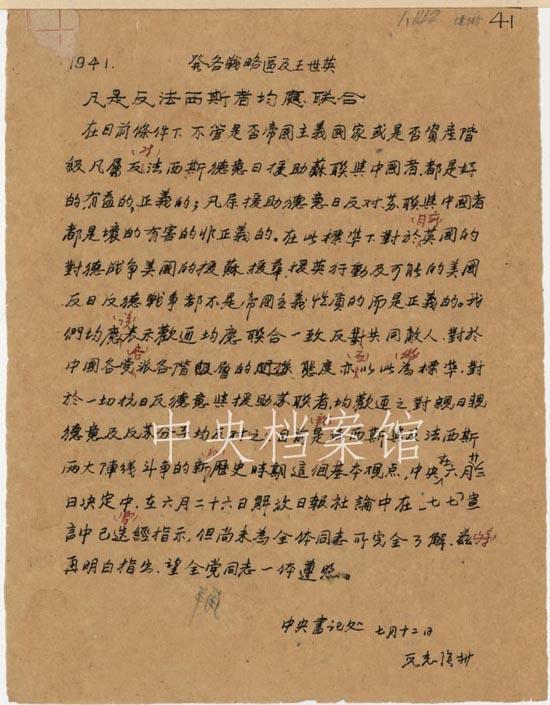 41
1941. 發各戰略區及王世英
凡是反法西斯者均應联合
在目前條件下不管是否帝國主義國家或是否資產階
級凡屬反对法西斯德意日援助蘇联與中國者都是好
的有益的,正義的;凡屬援助德意日反对苏联與中國者
都是壞的有害的非正義的。在此標準下對於目前英國的
對德战争美國的援蘇援華援英行動及可能的美國
反日反德戰争都不是帝國主義性質的而是正義的。我
們均應表示歡迎均應联合一致反對共同敵人.對於
中國各党各派各階層的態度亦以此為標準.對
於一切抗日反德意與援助苏联者,均歡迎之對親日親
德意及反苏分子均反对之目前是法西斯與反法西斯
兩大陣线斗争的新歷史時期這個基本观点,中央在六月廿三
日决定中,在六月二十六日解放日報社論中在「七七」宣
言中已迭經指示,但尚未為全体同志所完全了解.兹
再明白指出,望全党同志一体遵照。
中央書记处 七月十二日
中央档案馆